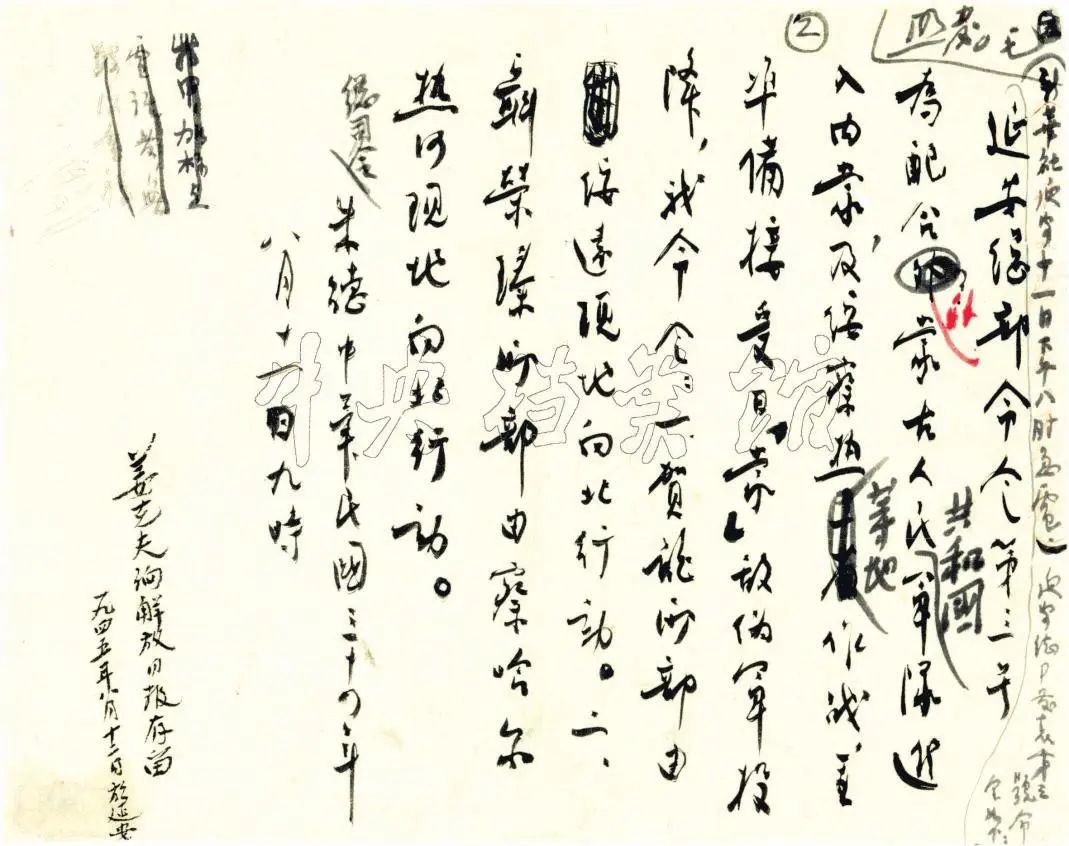 ②
照发 毛
(新华社延安十一日下午八时急电)延安总部发表第三号命令如下:
延安总部命令第三号
为配合外蒙古人民共和国军队进
入内蒙及绥察热等地作战,並
準備接受日「蒙」敌伪军投
降,我命令:一、賀龍所部由
绥遠现地向北行动。二、
聂榮臻所部由察哈尔
热河现地向北行动。
总司令 朱德 中華民國三十四年
八月十一日九時
姜克夫绚解放日报存留
一九四五年八月十二日於延安
中央档案馆